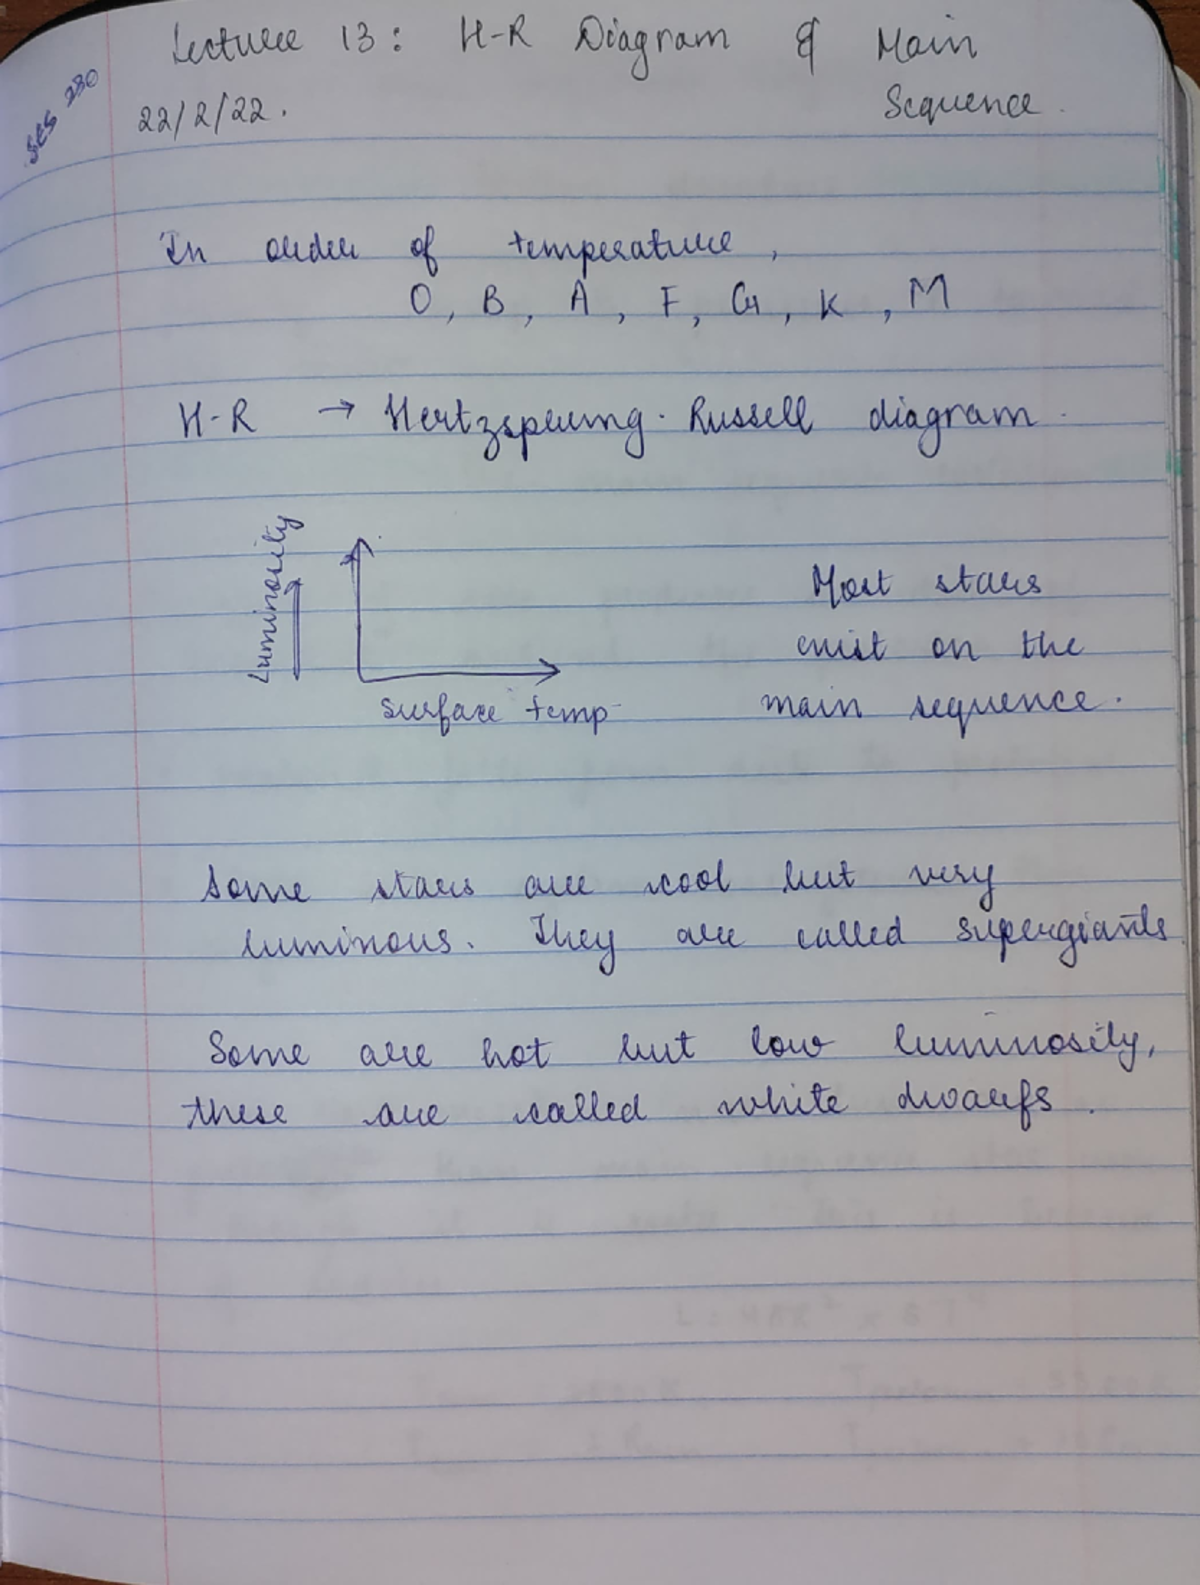 Lecture 13: H-R Diagram & Main
Sequence.
SES 280
22/2/22.
In order of temperature,
O, B, A, F, G, K, M
H-R → Hertzsprung-Russell diagram.
Luminosity
surface temp
Most stars
exist on the
main sequence.
Some stars are cool but very
luminous. They are called supergiants
Some are hot but low luminosity,
these are called white dwarfs.